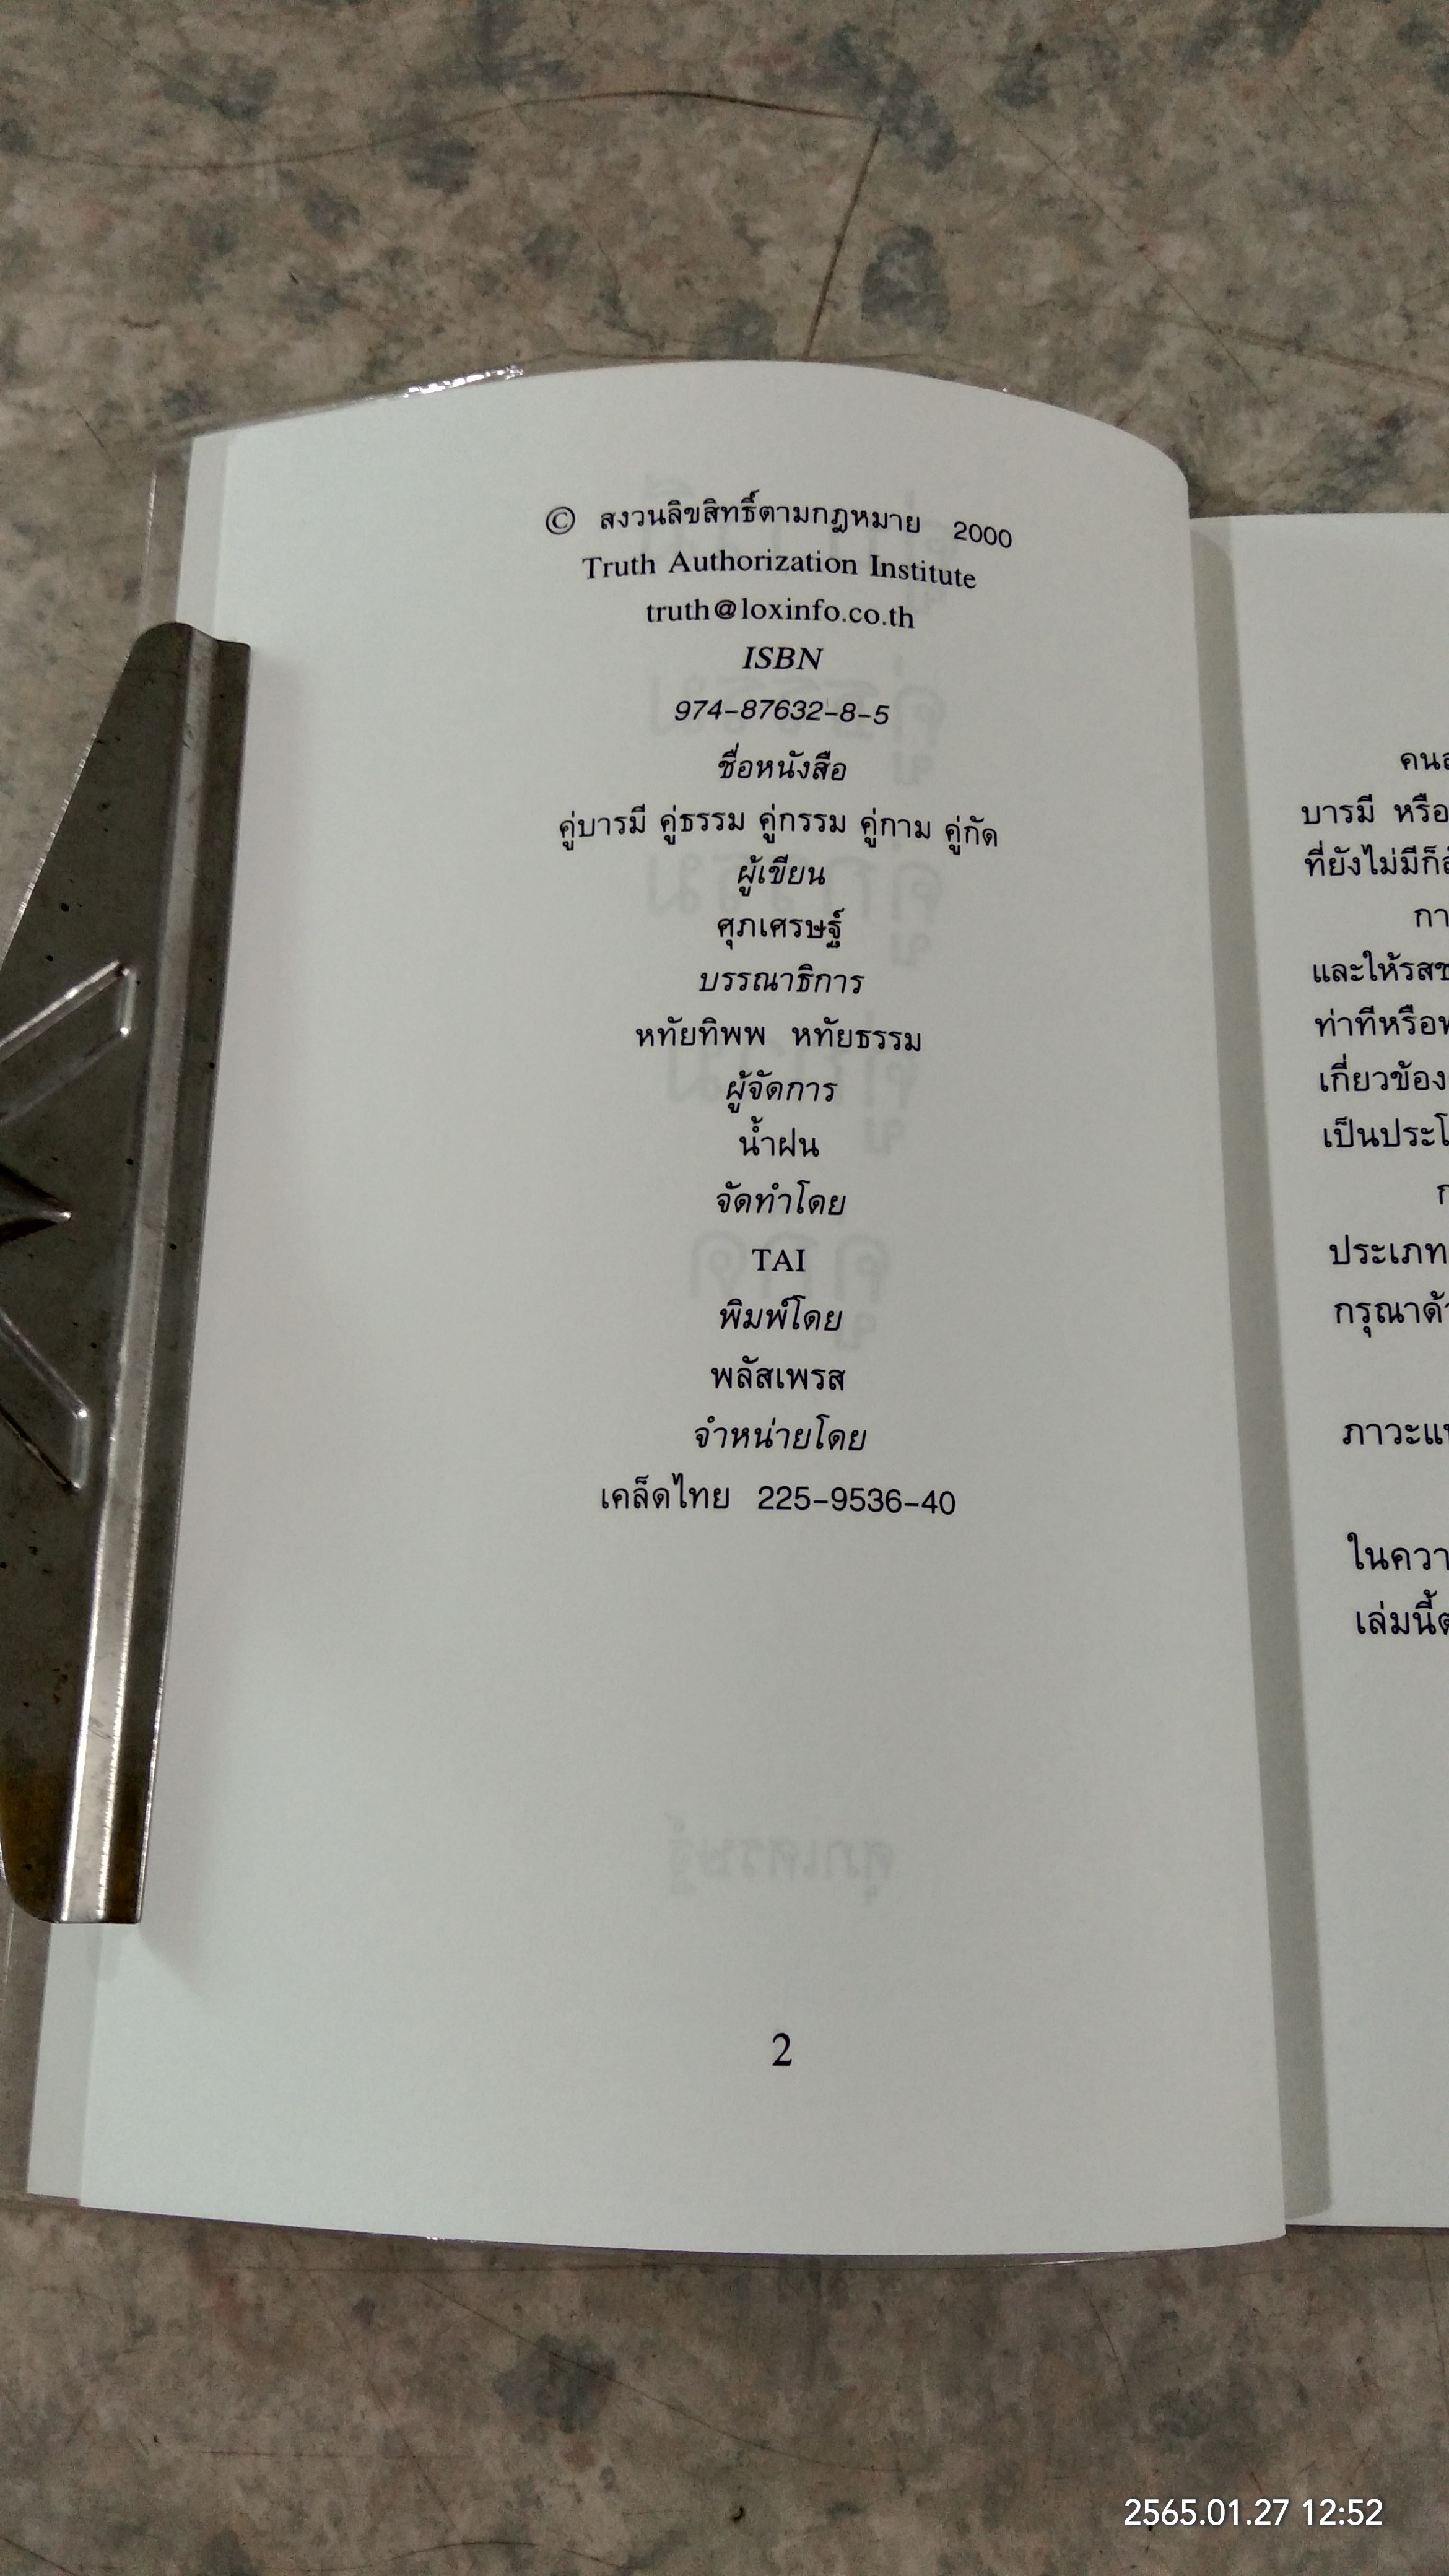 © สงวนลิขสิทธิ์ตามกฎหมาย 2000
Truth Authorization Institute
truth@loxinfo.co.th
ISBN
974-87632-8-5
ชื่อหนังสือ
คู่บารมี คู่ธรรม คู่กรรม คู่กาม คู่กัด
ผู้เขียน
ศุภเศรษฐ์
บรรณาธิการ
หทัยทิพพ หทัยธรรม
ผู้จัดการ
น้ำฝน
จัดทำโดย
TAI
พิมพ์โดย
พลัสเพรส
จำหน่ายโดย
เคล็ดไทย 225-9536-40
2
บารมี หรือ
ที่ยังไม่มีก็
และให้รส
ท่าทีหรือ
เกี่ยวข้อง
ประเภท
2565.01.27 12:52